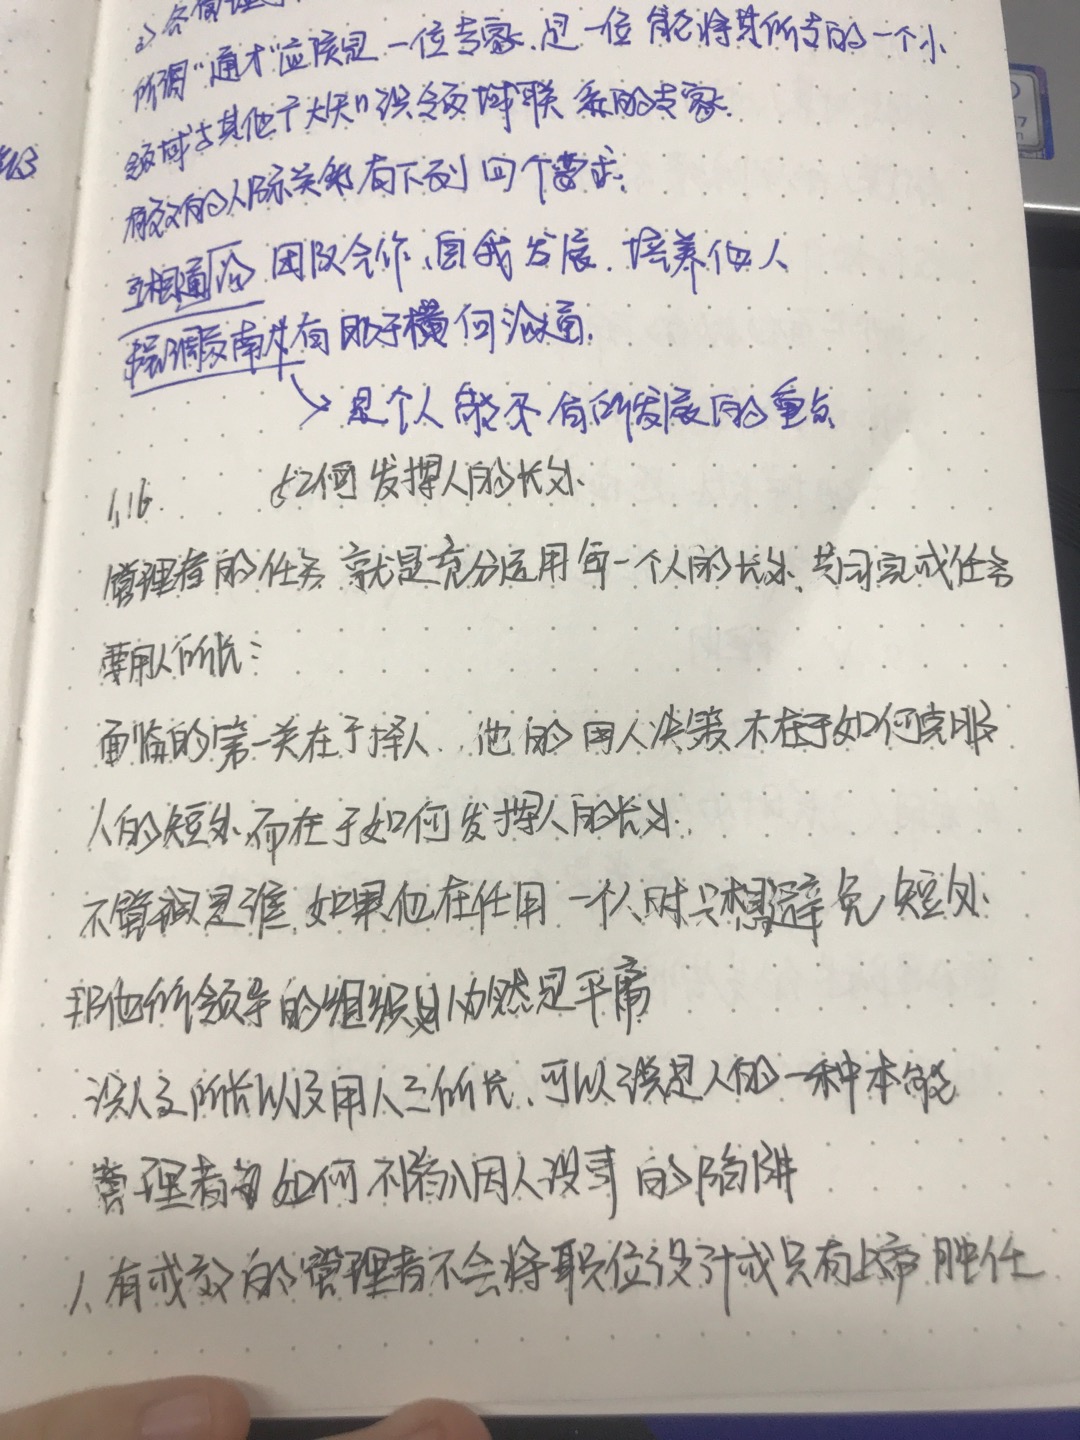 2> 各管理
所谓“通才”应该是一位专家.是一位能将其所专的一个小
领域与其他广大知识领域联系的专家.
有效的人际关系有下列四个要求:
互相沟通 团队合作、自我发展. 培养他人
强调贡献有助于横向沟通.
→ 是个人能不有所发展的重点
1.16. 如何发挥人的长处
管理者的任务就是充分运用每一个人的长处.共同完成任务
要用人所长:
面临的第一关在于择人. 他的用人决策不在于如何克服
人的短处.而在于如何发挥人的长处.
不管是谁.如果他在任用一个人时只想避免短处
那他所领导的组织必然是平庸
识人之所长以及用人之所长、可以说是人的一种本能
管理者如何不陷入因人设事的陷阱
1、有成效的管理者不会将职位设计成只有上帝胜任